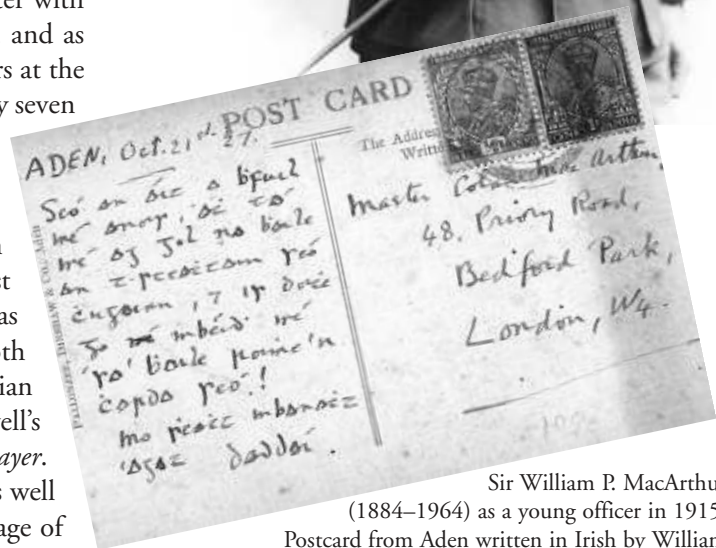 er with
and as
rs at the
y seven
st
as
oth
ian
ell's
ayer.
s well
age of
POST CARD
The Addres
Writt
ADEN, Oct. 21st. 27.
Seó an áit a bfuil
mé anois, 'sé tá
mé ag gol na baile
an tseactain seó
cugainn, ⁊ is
go mbéid mé
'sa' baile roime'n
cárda seó!
mo
agat daddaí.
Master Mac Arthur,
48, Priory Road,
Bedford Park,
London, W4.
Sir William P. MacArthu
(1884–1964) as a young officer in 1915
Postcard from Aden written in Irish by William